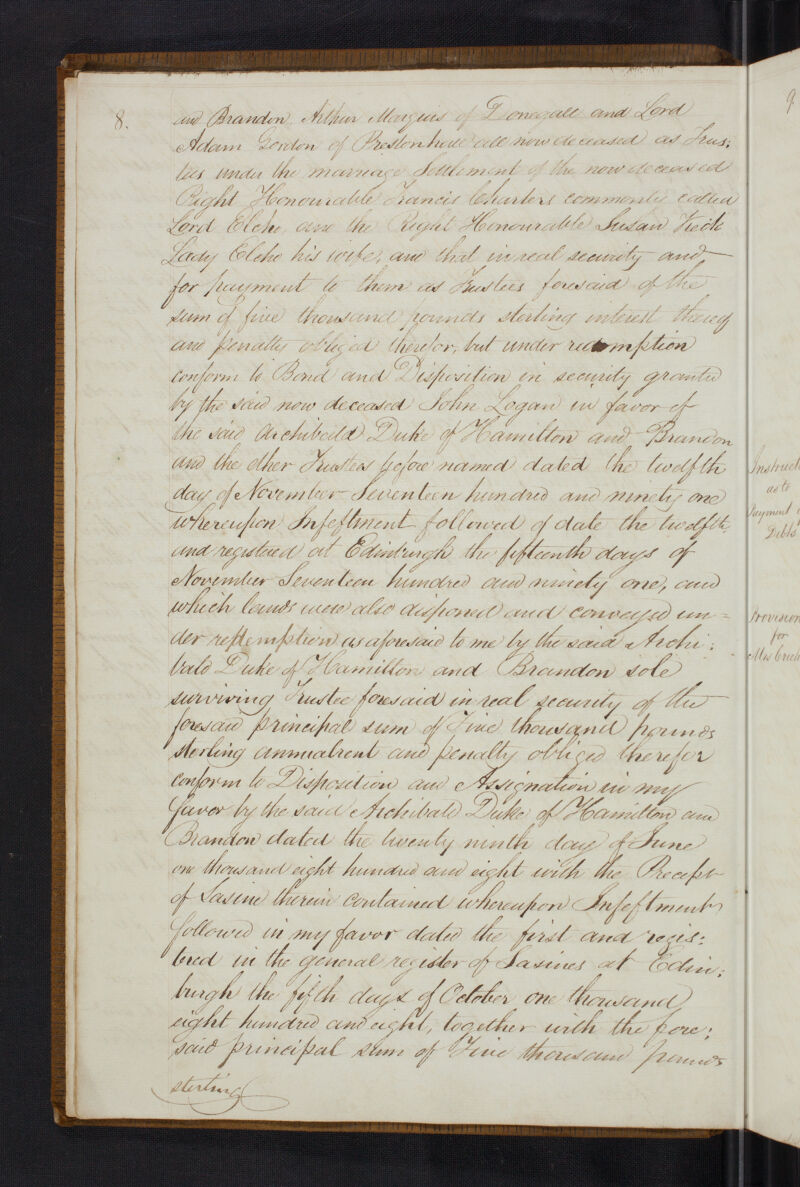 8.
and Brandon Arthur Marquis of Donegall and Lord
Adam Gordon of Prestonhall all now deceased as Trus:
tees under the marriage Settlement of the now deceased
Right Honourable Francis Charters commonly called
Lord Elcho and the Right Honourable Susan Keck
Lady Elcho his wife, and that in real security and
for payment to them as Trustees foresaid of the
sum of five thousand pounds sterling interest thereof
and penalty obliged therefor, but under redemption
conform to Bond and Disposition in security granted
by the said now deceased John Logan in favor of
the said Archibald Duke of Hamilton and Brandon
and the other Trustees before named dated the twelfth
day of November Seventeen hundred and ninety one
whereupon Infeftment followed of date the twelfth
and registered at Edinburgh the fifteenth days of
November Seventeen hundred and ninety one, and
which lands were also disponed and conveyed un=
der redemption as aforesaid to me by the said Archi:
bald Duke of Hamilton and Brandon sole
surviving Trustee foresaid in real security of the
foresaid principal sum of Five thousand pounds
sterling annualrent and penalty obliged therefor
conform to Disposition and Assignation in my
favor by the said Archibald Duke of Hamilton and
Brandon dated the twenty ninth day of June
one thousand eight hundred and eight with the Precept
of Sasine therein contained whereupon Infeftment
followed in my favor dated the first and regis:
tered in the general register of Sasines at Edin:
burgh the fifth days of October one thousand
eight hundred and eight, together with the fore:
said principal sum of Five thousand pounds
sterling
9
Instruct
as to
Payment
Debts
Provision
for
Mrs